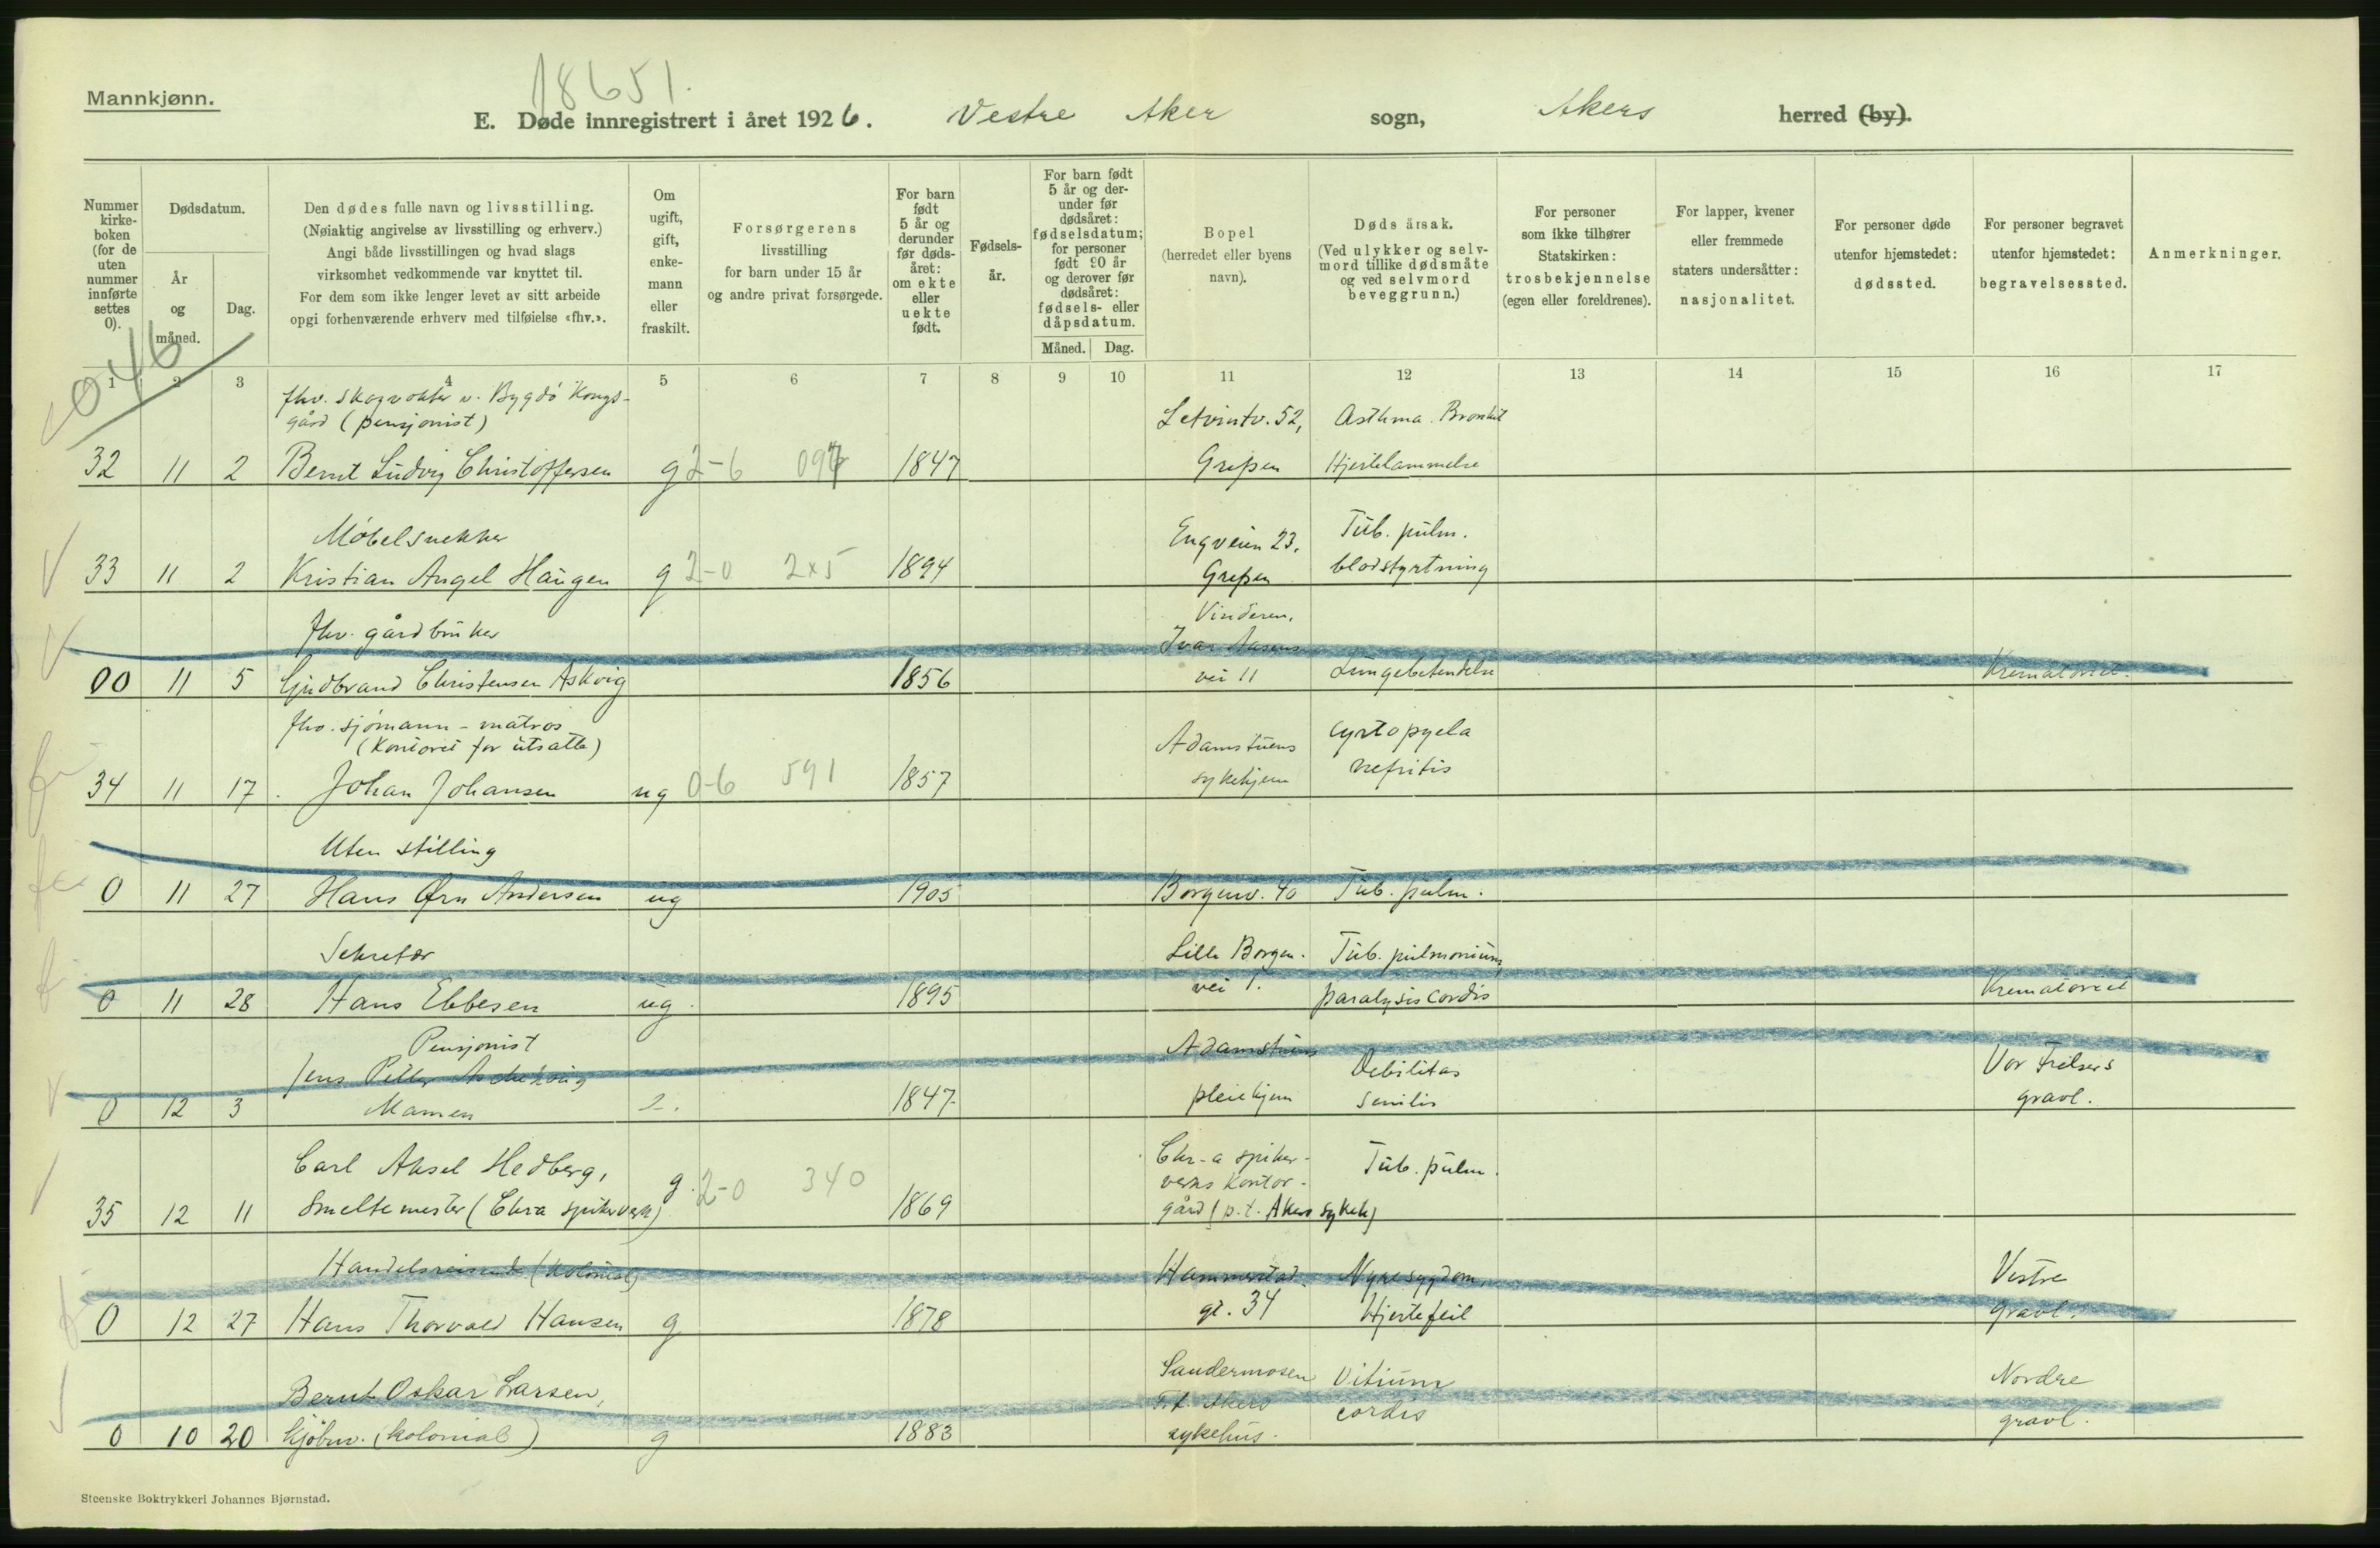 18651.
Mannkjønn.
E. Døde innregistrert i året 1926. Vestre Aker sogn, Akers herred (by).
Nummer kirke-boken (for de uten nummer innførte settes 0).
Dødsdatum.
År og måned.
Dag.
Den dødes fulle navn og livsstilling.
(Nøiaktig angivelse av livsstilling og erhverv.)
Angi både livsstillingen og hvad slags
virksomhet vedkommende var knyttet til.
For dem som ikke lenger levet av sitt arbeide
opgi forhenværende erhverv med tilføielse «fhv.».
Om ugift, gift, enke-mann eller fraskilt.
Forsørgerens
livsstilling
for barn under 15 år
og andre privat forsørgede.
For barn født 5 år og derunder før døds-året: om ekte eller uekte født.
Fødsels-år.
For barn født 5 år og der-under før dødsåret: fødselsdatum; for personer født 90 år og derover før dødsåret: fødsels- eller dåpsdatum.
Måned. Dag.
Bopel
(herredet eller byens
navn).
Døds årsak.
(Ved ulykker og selv-
mord tillike dødsmåte
og ved selvmord
beveggrunn.)
For personer
som ikke tilhører
Statskirken:
trosbekjennelse
(egen eller foreldrenes).
For lapper, kvener
eller fremmede
staters undersåtter:
nasjonalitet.
For personer døde
utenfor hjemstedet:
dødssted.
For personer begravet
utenfor hjemstedet:
begravelsessted.
Anmerkninger.
1 2 3 4 5 6 7 8 9 10 11 12 13 14 15 16 17
046
fhv. skogvokter v. Bygdö Kongs-
gård (pensjonist) Letvintv. 52, Asthma. Bronkit
32 11 2 Bernt Ludvig Christoffersen g 2-6 097 1847 Grefsen Hjertelammelse
Möbelsnekker Engveien 23, Tub. pulm.
33 11 2 Kristian Angel Haugen g 2-0 2x5 1894 Grefsen blodstyrtning
fhv. gårdbruker Vinderen,
Ivar Aasens
00 11 5 Gudbrand Christensen Askvig 1856 vei 11 Lungebetendelse Krematoriet.
fhv. sjömann - matros
(Kontoret for utsatte) Adamstuens cyrtopyela
34 11 17. Johan Johansen ug 0-6 591 1857 sykehjem nefritis
Uten stilling
0 11 27 Hans Ørn Andersen ug 1905 Borgenv. 40 Tub. pulm.
Sekretær Lille Borgen. Tub. pulmonium,
0 11 28 Hans Ebbesen ug. 1895 vei 1. paralysis cordis Krematoriet
Pensjonist Adamstuens
Jens Petter Debilitas Vor Frelsers
0 12 3 Mamen 2. 1847 pleiehjem senilis gravl.
Carl Aksel Hedberg, Chr-a spiker-
g 2-0 340 verks Kontor- Tub. pulm.
35 12 11 Smeltemester (Chra spikerverk) 1869 gård (p.t. Akers sykeh)
Handelsreisende (Kolonial) Hammerstad. Nyresygdom, Vestre
0 12 27 Hans Thorvald Hansen g 1878 gt. 34 Hjertefeil gravl.
Bernt Oskar Larsen, Sandermosen Vitium Nordre
T.t. Akers cordis
0 10 20 kjøbm. (kolonial) g 1883 sykehus. gravl.
Steenske Boktrykkeri Johannes Bjørnstad.